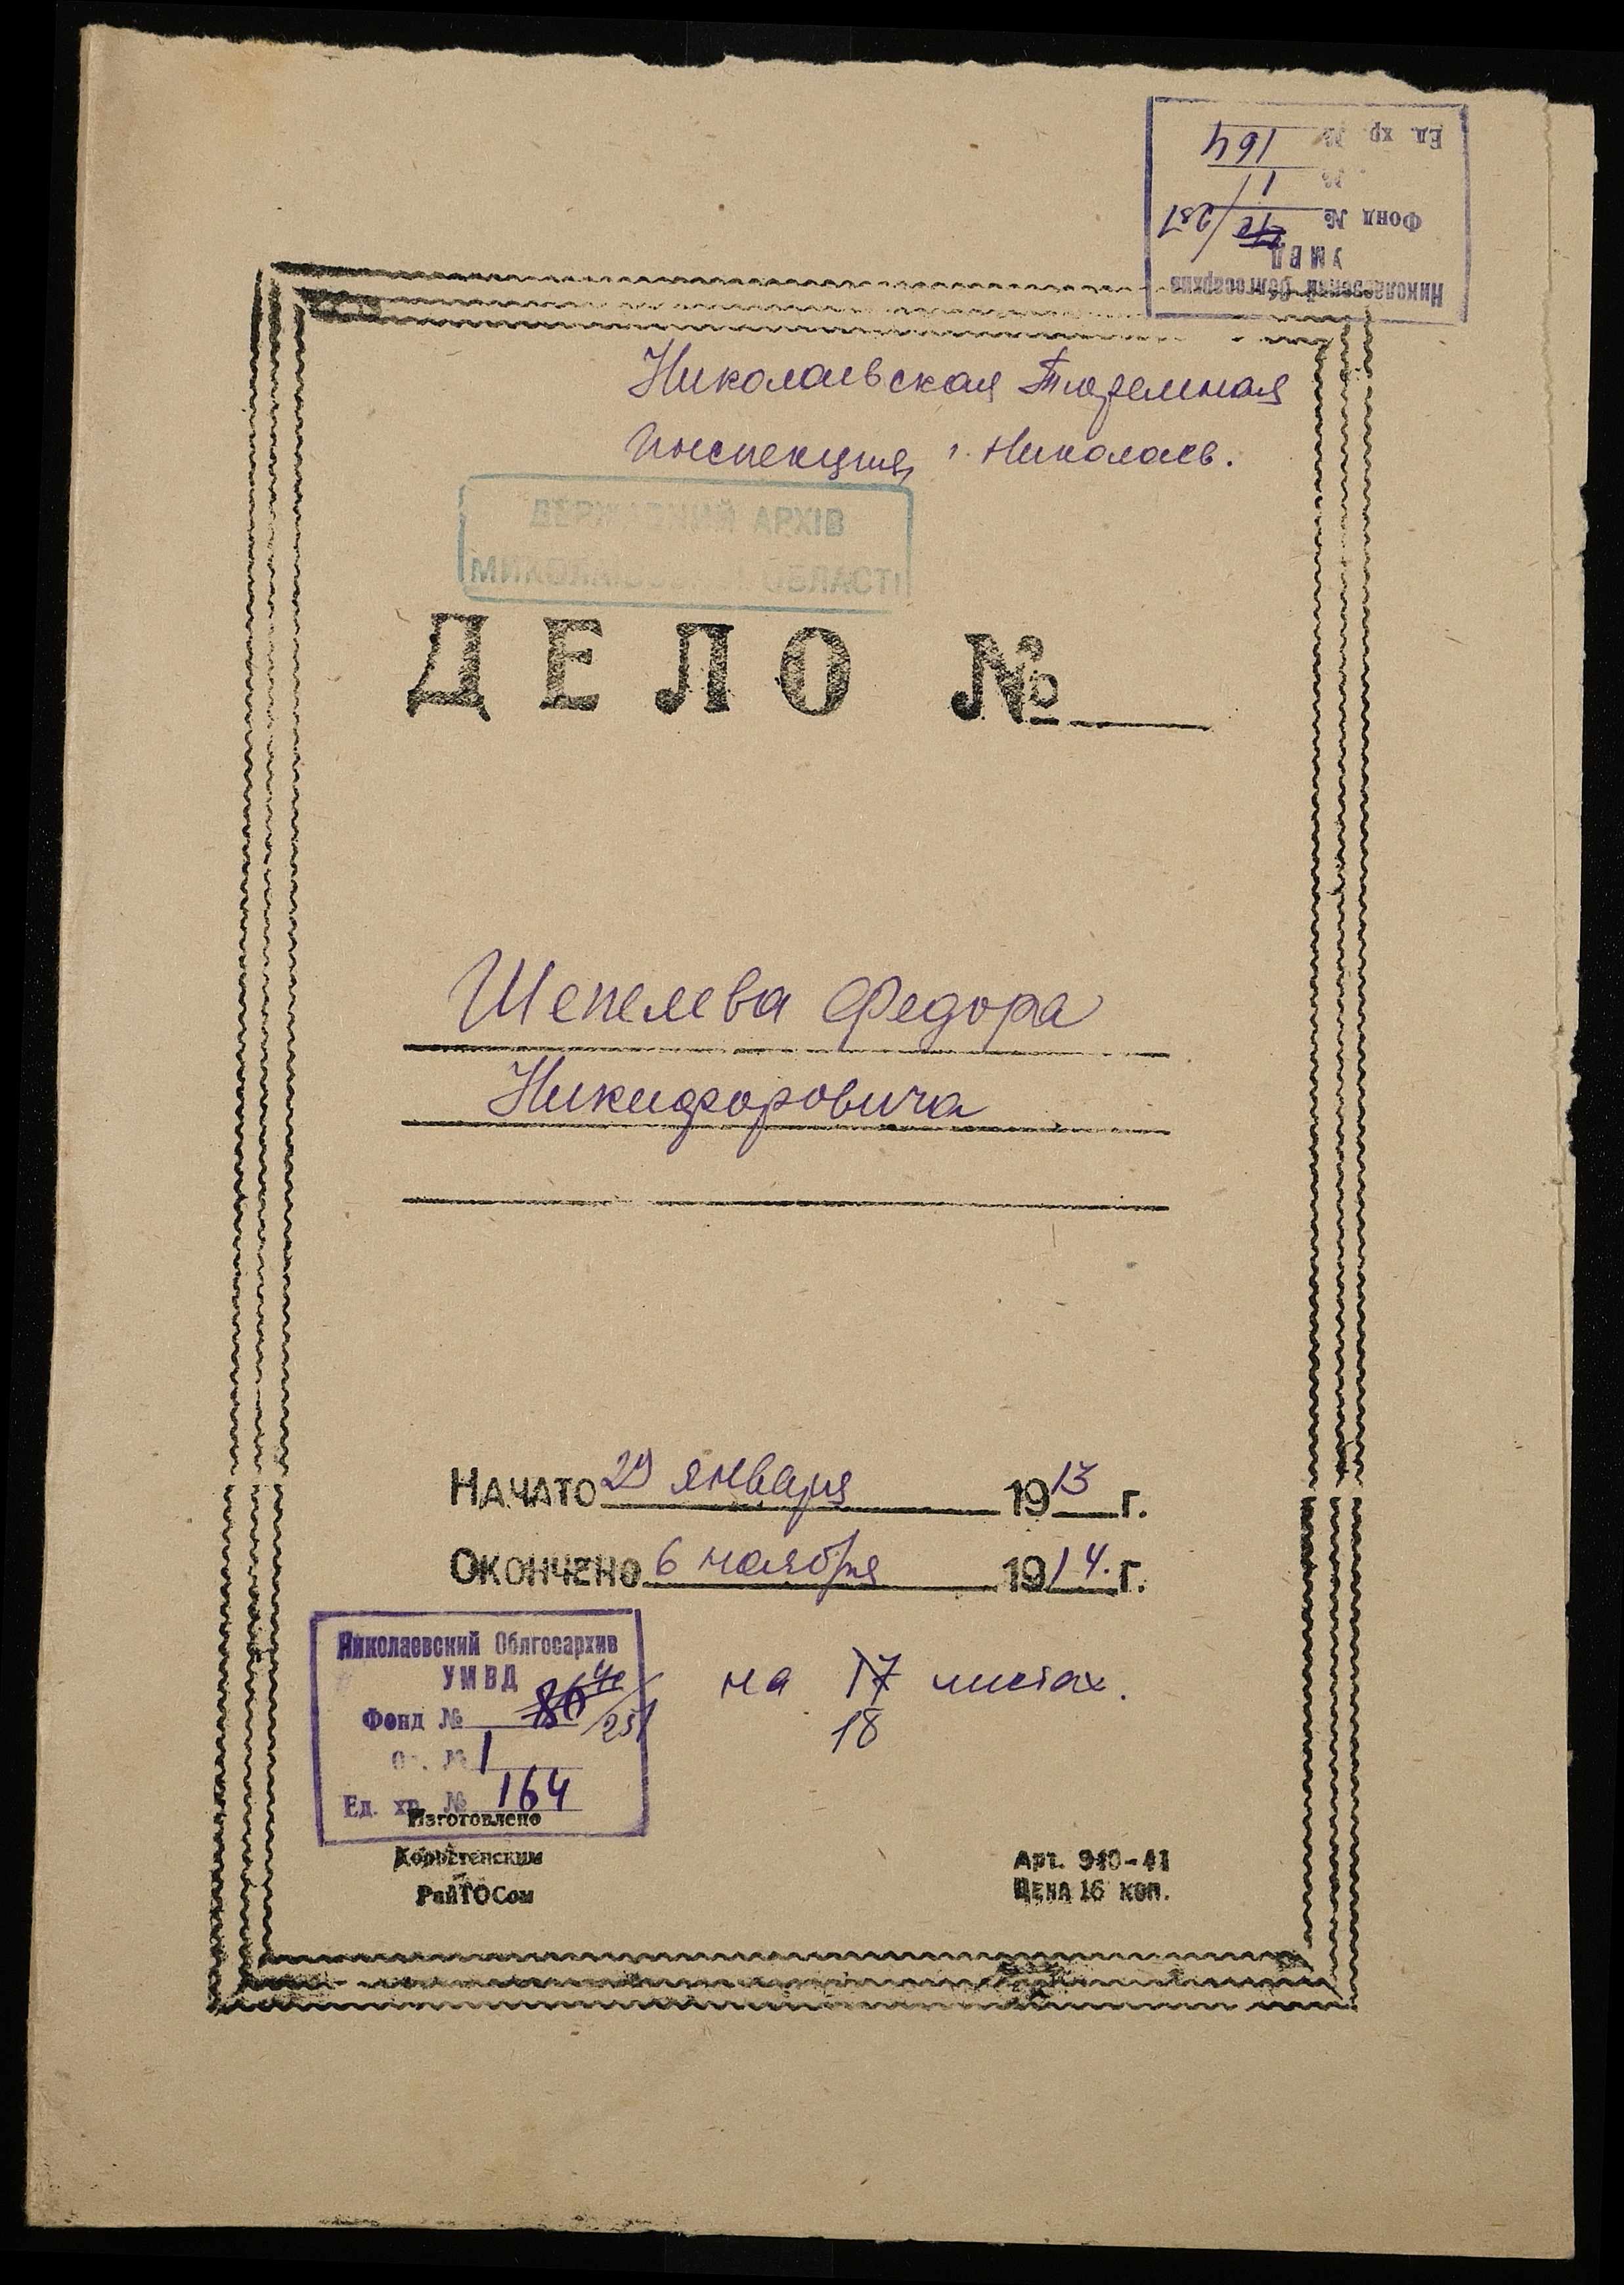 Николаевский Облгосархив
УМВД
Фонд № 251
№ 1
Ед. хр. № 164
Николаевская Тюремная
Инспекция г. Николаев.
ДЕРЖАВНИЙ АРХІВ
МИКОЛАЇВСЬКОЇ ОБЛАСТІ
ДЕЛО №
Шепелева Федора
Никифоровича
НАЧАТО 29 января 1913 г.
ОКОНЧЕНО 6 ноября 1914. г.
Николаевский Облгосархив
УМВД
Фонд № 251
Оп. № 1
Ед. хр. № 164
на 17 листах.
18
Изготовлено
РайТОСом
Арт. 940-41
ЦЕНА 16 коп.